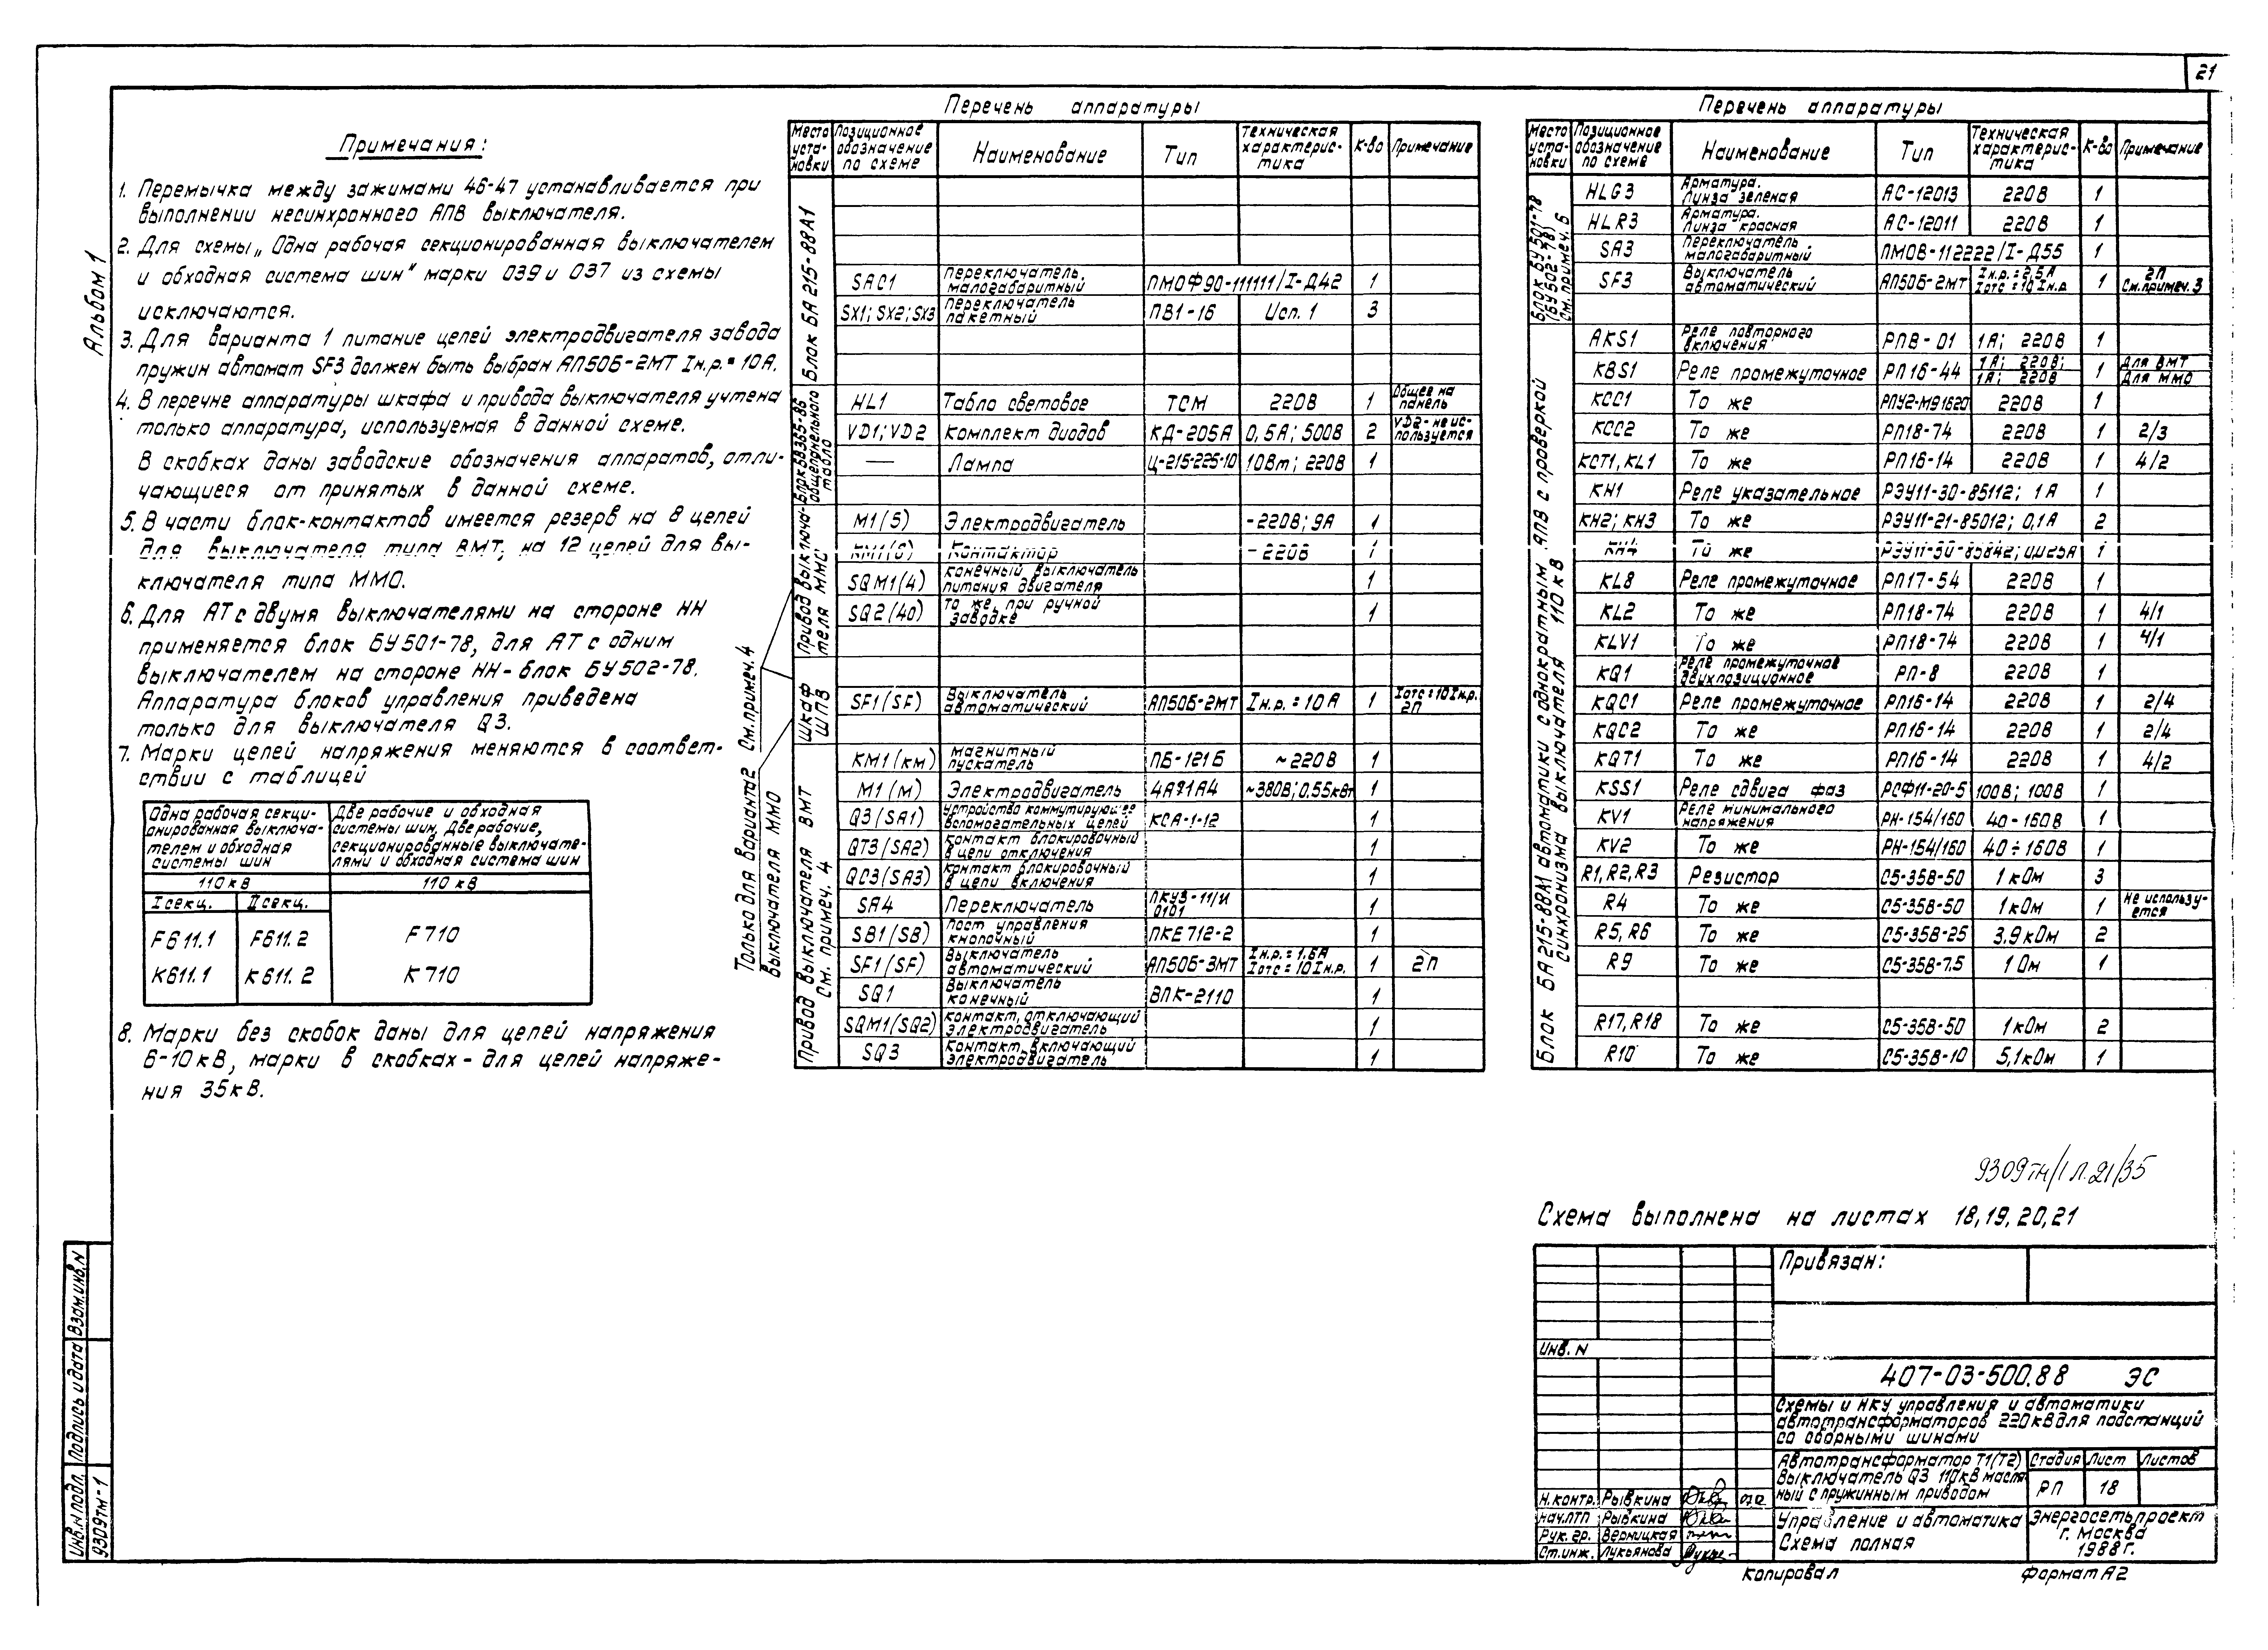 21
Альбом 1
Примечания:
1. Перемычка между зажимами 46-47 устанавливается при
выполнении несинхронного АПВ выключателя.
2. Для схемы „Одна рабочая секционированная выключателем
и обходная система шин" марки 039 и 037 из схемы
исключаются.
3. Для варианта 1 питание цепей электродвигателя завода
пружин автомат SF3 должен быть выбран АП50Б-2МТ Iн.р.=10А.
4. В перечне аппаратуры шкафа и привода выключателя учтена
только аппаратура, используемая в данной схеме.
В скобках даны заводские обозначения аппаратов, отли-
чающиеся от принятых в данной схеме.
5. В части блок-контактов имеется резерв на 8 цепей
для выключателя типа ВМТ, на 12 цепей для вы-
ключателя типа ММО.
6. Для АТ с двумя выключателями на стороне НН
применяется блок БУ501-78, для АТ с одним
выключателем на стороне НН-блок БУ502-78.
Аппаратура блоков управления приведена
только для выключателя Q3.
7. Марки цепей напряжения меняются в соответ-
ствии с таблицей
Одна рабочая секци-
онированная выключа-
телем и обходная
системы шин
Две рабочие и обходная
системы шин, Две рабочие,
секционированные выключате-
лями и обходная система шин
110 кВ 110 кВ
I секц. II секц.
F611.1 F611.2 F710
K611.1 K611.2 K710
8. Марки без скобок даны для цепей напряжения
6-10кВ, марки в скобках - для цепей напряже-
ния 35кВ.
Перечень аппаратуры
Место уста-новки Позиционное обозначение по схеме Наименование Тип Техническая характерис-тика К-во Примечание
Блок БА 215-88А1
SAC1 Переключатель малогабаритный ПМОФ90-111111/I-Д42 1
SX1; SX2; SX3 Переключатель пакетный ПВ1-16 Исп. 1 3
Блок БВ365-86 общепанельного табло
HL1 Табло световое ТСМ 220В 1 Общее на панель
VD1; VD2 Комплект диодов КД-205А 0,5А; 500В 2 VD2-не ис-пользуется
— Лампа Ц-215-225-10 10Вт; 220В 1
Привод выключа-теля ММО
М1(5) Электродвигатель -220В; 9А 1
КМ1(6) Контактор -220В 1
SQM1(4) Конечный выключатель питания двигателя 1
SQ2(40) То же, при ручной заводке 1
Шкаф ШПВ
SF1(SF) Выключатель автоматический АП50Б-2МТ Iн.р.=10А 1 Iотс=10Iн.р. 2П
Только для варианта 2
выключателя ММО См. примеч. 4
Привод выключателя ВМТ
См. примеч. 4
KM1(КМ) Магнитный пускатель ПБ-121Б ~220В 1
М1(М) Электродвигатель 4АЯ1А4 ~380В; 0,55кВт 1
Q3(SA1) Устройство коммутирующее вспомогательных цепей КСА-1-12 1
QT3(SA2) Контакт блокировочный в цепи отключения 1
QC3(SA3) Контакт блокировочный в цепи включения 1
SA4 Переключатель ПКУ3-11/И 0101 1
SB1(SB) Пост управления кнопочный ПКЕ 712-2 1
SF1(SF) Выключатель автоматический АП50Б-3МТ Iн.р.=1,6А Iотс=10Iн.р. 1 2П
SQ1 Выключатель конечный ВПК-2110 1
SQM1(SQ2) Контакт, отключающий электродвигатель 1
SQ3 Контакт, включающий электродвигатель 1
Перечень аппаратуры
Место уста-новки Позиционное обозначение по схеме Наименование Тип Техническая характерис-тика К-во Примечание
Блок БУ501-78
(БУ502-78)
см. примеч. 6
HLG3 Арматура. Линза зеленая АС-12013 220В 1
HLR3 Арматура. Линза красная АС-12011 220В 1
SA3 Переключатель малогабаритный ПМОВ-112222/I-Д55 1
SF3 Выключатель автоматический АП50Б-2МТ Iн.р.=2,5А Iотс=10Iн.р 1 2П См.примеч.3
Блок БА215-88М автоматики с однократным АПВ с проверкой
синхронизма выключателя 110кВ
AKS1 Реле повторного включения РПВ-01 1А; 220В 1
KBS1 Реле промежуточное РП16-44 1А; 220В; 1А; 220В 1 Для ВМТ Для ММО
KCC1 То же РПУ2-М91620 220В 1
KCC2 То же РП18-74 220В 1 2/3
KCT1, KL1 То же РП16-14 220В 1 4/2
KH1 Реле указательное РЭУ11-30-85112; 1А 1
KH2; KH3 То же РЭУ11-21-85012; 0,1А 2
KH4 То же 1
KL8 Реле промежуточное РП17-54 220В 1
KL2 То же РП18-74 220В 1 4/1
KLV1 То же РП18-74 220В 1 4/1
KQ1 Реле промежуточное двухпозиционное РП-8 220В 1
KQC1 Реле промежуточное РП16-14 220В 1 2/4
KQC2 То же РП16-14 220В 1 2/4
KQT1 То же РП16-14 220В 1 4/2
KSS1 Реле сдвига фаз РСФ11-20-5 100В; 100В 1
KV1 Реле минимального напряжения РН-154/160 40-160В 1
KV2 То же РН-154/160 40÷160В 1
R1, R2, R3 Резистор С5-35В-50 1кОм 3
R4 То же С5-35В-50 1кОм 1 Не использу-ется
R5, R6 То же С5-35В-25 3,9кОм 2
R9 То же С5-35В-7,5 1Ом 1
R17, R18 То же С5-35В-50 1кОм 2
R10 То же С5-35В-10 5,1кОм 1
9309тм/1 л.21/35
Схема выполнена на листах 18, 19, 20, 21
Привязан:
Инв. N
407-03-500.88 ЭС
Схемы и НКУ управления и автоматики
автотрансформаторов 220кВ для подстанций
со сборными шинами
Автотрансформатор Т1(Т2)
Выключатель Q3 110кВ масля-
ный с пружинным приводом
Стадия Лист Листов
РП 18
Н.контр. Рывкина
Нач.ПТП Рывкина
Рук. гр. Верницкая
Ст.инж. Лукьянова
Управление и автоматика
Схема полная
Энергосетьпроект
г. Москва
1988г.
Копировал Формат А2
Взам.инв.N
Подпись и дата
Инв.N подл. 9309тм-1